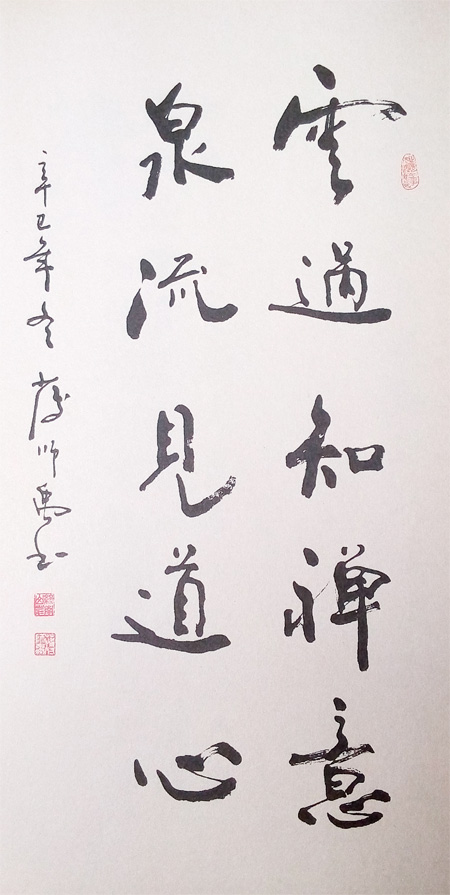 雲過知禪意
泉流見道心
辛巳年冬 禹書